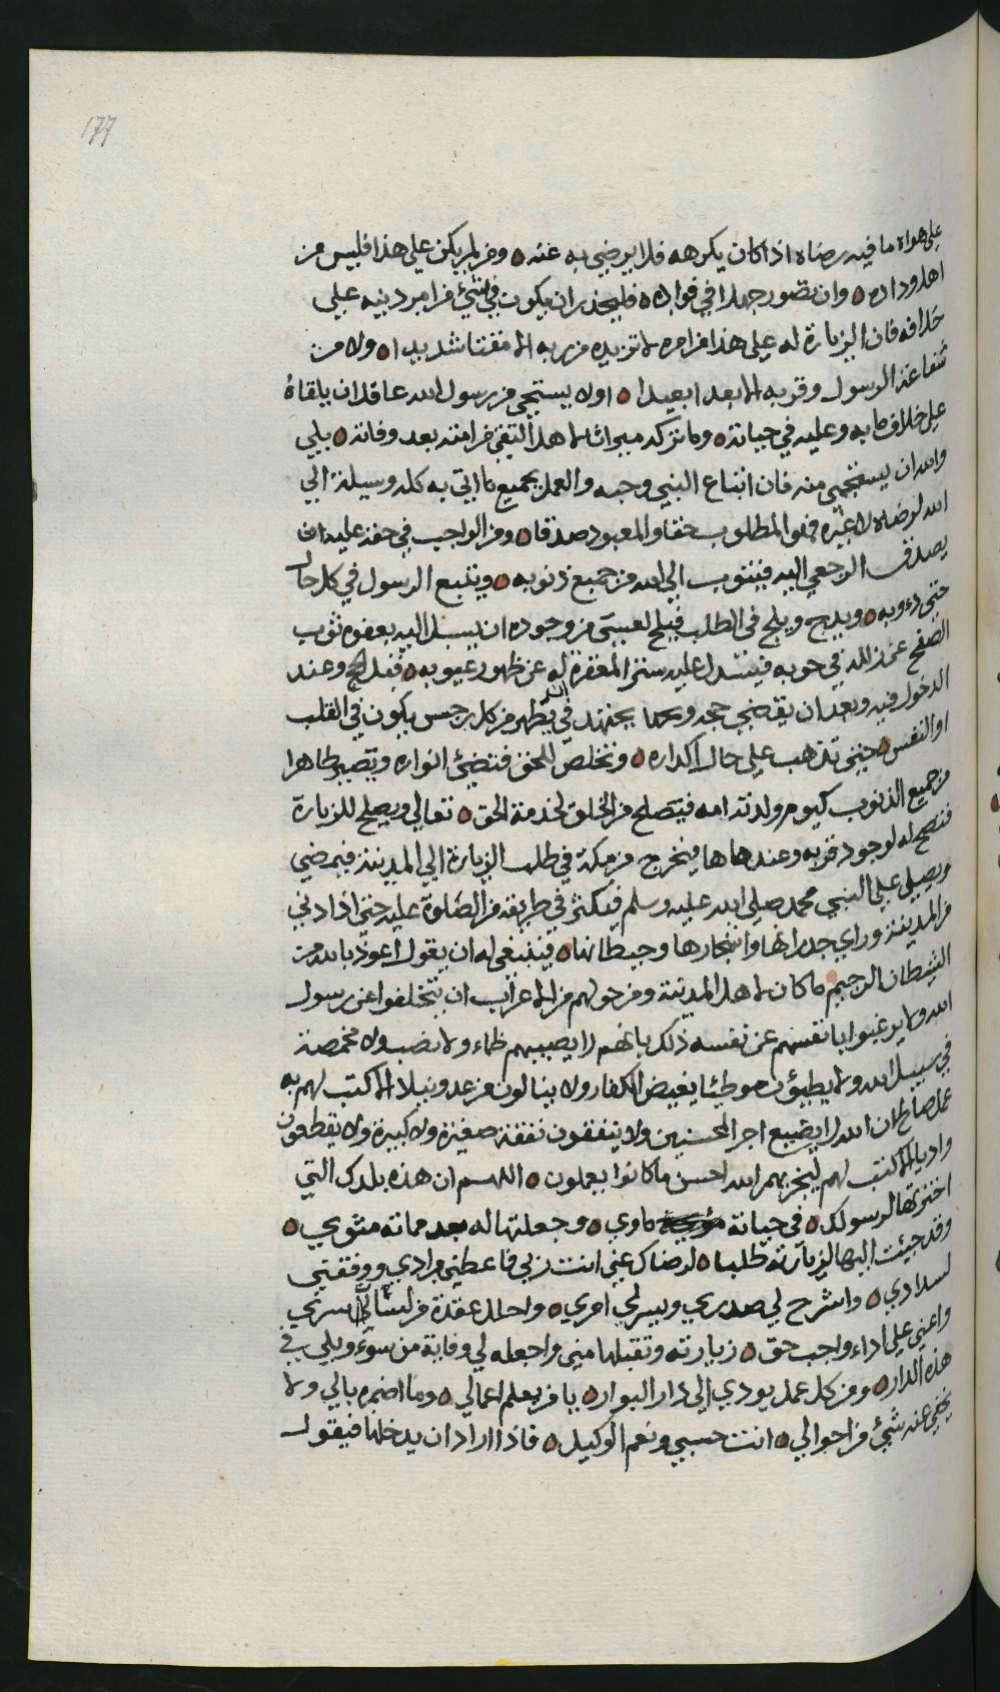 177
على هواه ما فيه رضاه اذا كان يكرهه فلا يرضى به عنه ٥ ومن لم يكن على هذا فليس من
اهل وداده ٥ وان تصور جهلا في فواده ٥ فليحذر ان يكون في شيء من امر دينه على
خلافه فان الزيارة له على هذا من امره لا تزيده من ربه الا مقتا شديدا ٥ ولا من
شفاعة الرسول وقربه الا بعدا بعيدا ٥ اولا يستحي من رسول الله عاقل ان يلقاهُ
على خلاف ما به وعليه في حياته ٥ وما تركه ميراثا لاهل التقى من امته بعد وفاته ٥ بلى
والله ان يستحي منه فان اتباع النبي وحبه والعمل بجميع ما اتى به كله وسيلة الى
الله لرضاه لا غيره فهو المطلوب حقا والمعبود صدقا ٥ ومن الواجب في حقه عليه ان
يصدق الرجعى اليه فيتوب الى الله من جميع ذنوبه ٥ ويتبع الرسول في كل حال
حتى دءوبه ٥ ويدج ويلج في الطلب فيلح لعسى من وجوده ان يسبل اليه بعفوه ثوب
الصفح عن زلله في حوبه فينسدل عليه ستر المغفرة له عن ظهور عيوبه ٥ قبل الحج وعند
الدخول فيه وبعد ان يقضي حجه وبعدما يجتهد في ان يطهر من كل رجس يكون في القلب
او النفس ٥ حتى تذهب على حال اكداره ٥ وتخلص للحق فتضئ انواره ويصير طاهرا
من جميع الذنوب كيوم ولدته امه فيصلح من الخلق لخدمة الحق ٥ تعالى ويصلح للزيارة
فتصح له لوجود قربه وعندها فيخرج من مكة في طلب الزيارة الى المدينة فيمضي
ويصلي على النبي محمد صلى الله عليه وسلم فيكثر في طريقه من الصلوة عليه حتى اذا دنى
من المدينة وراى جدرانها واشجارها وحيطانها ٥ فينبغي له ان يقول اعوذ بالله من
الشيطان الرجيم ما كان لاهل المدينة ومن حولهم من الاعراب ان يتخلفوا عن رسول
الله ولا يرغبوا بانفسهم عن نفسه ذلك بانهم لا يصيبهم ظماء ولا نصب ولا مخمصة
في سبيل الله ولا يطيؤن موطئا يغيض الكفار ولا ينالون من عدو نيلا الا كتب لهم به
عمل صالح ان الله لا يضيع اجر المحسنين ولا ينفقون نفقة صغيرة ولا كبيرة ولا يقطعون
واديا الا كتب لهم ليجزيهم الله احسن ما كانوا يعملون ٥ اللهم ان هذه بلدك التي
اخترتها لرسولك ٥ في حياته ماوى ٥ وجعلتها له بعد مماته مثوى ٥
وقد جيئت اليها لزيارته طلبا ٥ لرضاك عني انت ربي فاعطني مرادي ووفقني
لسدادي ٥ واشرح لي صدري ويسر لي امري ٥ واحلل عقدة من لساني لسري
واعني على اداء واجب حق ٥ زيارته وتقبلها مني واجعله لي وقاية من سوء وبلى في
هذه الدار ٥ ومن كل عمل يودي الى دار البوار ٥ يا من يعلم اعمالي ٥ وما اضمره بالي ولا
يخفى عنه شيئ من احوالي ٥ انت حسبي ونعم الوكيل ٥ فاذا اراد ان يدخلها فيقول